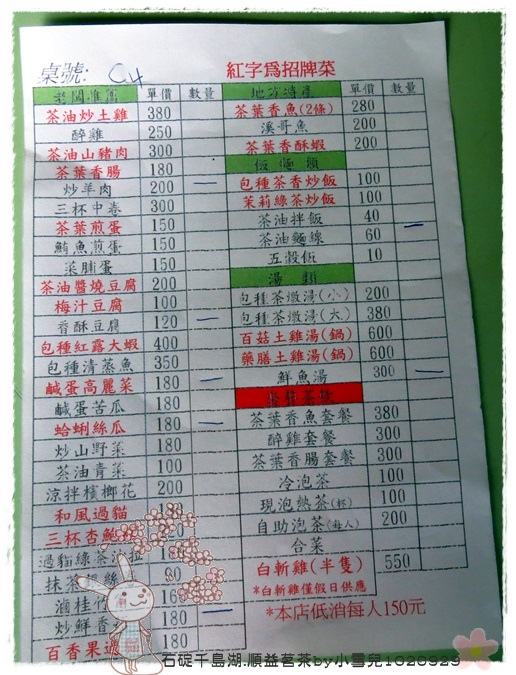 桌號: C4
紅字為招牌菜
老闆推薦 單價 數量
茶油炒土雞 380
醉雞 250
茶油山豬肉 300
茶葉香腸 180
炒羊肉 200
三杯中卷 300
茶葉煎蛋 150
鮪魚煎蛋 150
菜脯蛋 150
茶油醬燒豆腐 200
梅汁豆腐 100
香酥豆腐 120
包種紅露大蝦 400
包種清蒸魚 350
鹹蛋高麗菜 180
鹹蛋苦瓜 180
蛤蜊絲瓜 180
炒山野菜 180
茶油青菜 100
涼拌檳榔花 200
和風過貓
三杯杏鮑菇
過貓綠茶油拉
抹茶 絲 90
滷桂竹
炒鮮香 180
百香果過 180
地方特產 單價 數量
茶葉香魚(2條) 280
溪哥魚 200
茶葉香酥蝦 200
飯麵類
包種茶香炒飯 100
茉莉綠茶炒飯 100
茶油拌飯 40
茶油麵線 60
五穀飯 10
湯類
包種茶燉湯(小) 200
包種茶燉湯(大) 380
百菇土雞湯(鍋) 600
藥膳土雞湯(鍋) 600
鮮魚湯 300
茶葉香魚套餐 380
醉雞套餐 300
茶葉香腸套餐 300
冷泡茶 100
現泡熱茶(杯) 100
自助泡茶(每人) 200
合菜
白斬雞(半隻) 550
*白斬雞僅假日供應
*本店低消每人150元
石碇千島湖.順益茗茶by小雪兒1020929